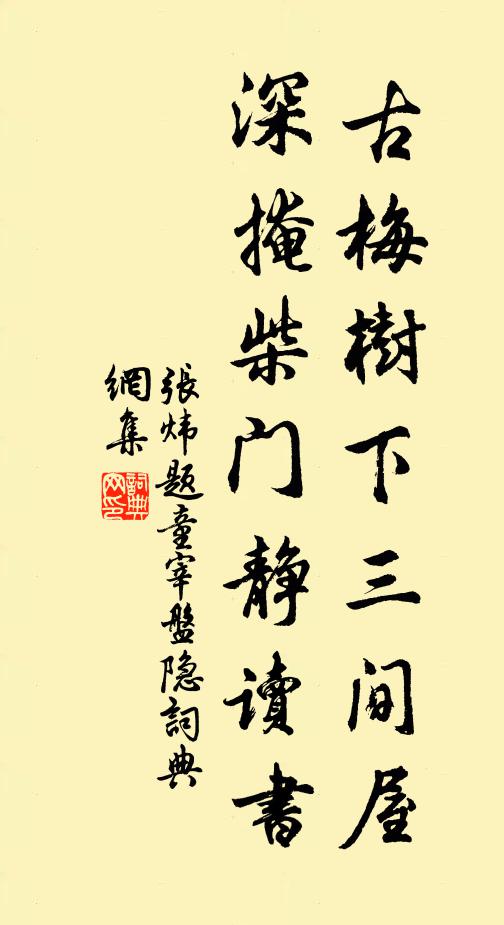 古梅樹下三间屋
深掩柴门静讀書
張炜题童宰盤隐詞典
網集
詞典
网印